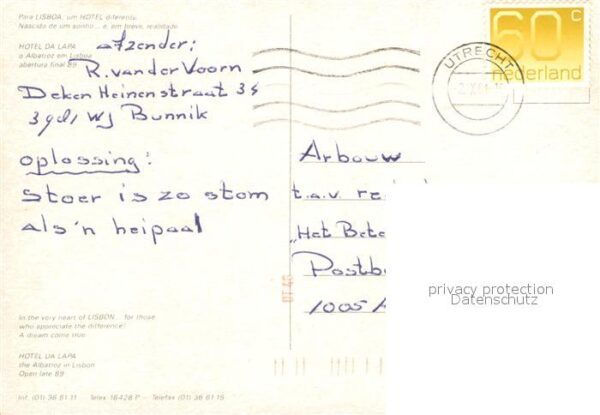 Para LISBOA, um HOTEL diferente.
Nascido de um sonho... e, em breve, realidade.
HOTEL DA LAPA
o Albatroz em Lisboa
abertura final 89
Afzender:
R. van der Voorn
Deken Heinenstraat 34
WJ Bunnik
oplossing:
Stoer is zo stom
als 'n heipaal
In the very heart of LISBON... for those
who appreciate the difference!
A dream come true
HOTEL DA LAPA
the Albatroz in Lisbon
Open late 89
Inf. (01) 36 61 11 Telex 16428 P - Telefax (01) 36 61 15
UTRECHT
60 c
nederland
Arbouw
t.a.v. re
„Het Bete
Postb
1005
DT 40
privacy protection
Datenschutz